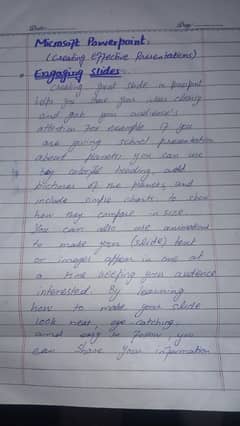 Date: Day:
Microsoft Powerpoint.
(Creating Effective Presentations)
Engaging Slides:-
Creating great slide in powerpoint
helps you share your ideas clearly
and grab your audience's
attention For example if you
are giving school presentation
about planets you can use
big colorful heading, add
Pictures of the Planets, and
include simple charts to show
how they compare in size.
You can also use animations
to make your (slide) text
or images appear in one at
a time keeping your audience
interested. By learning
how to make your slide
look neat, eye-catching,
and easy to follow, you
can share your information